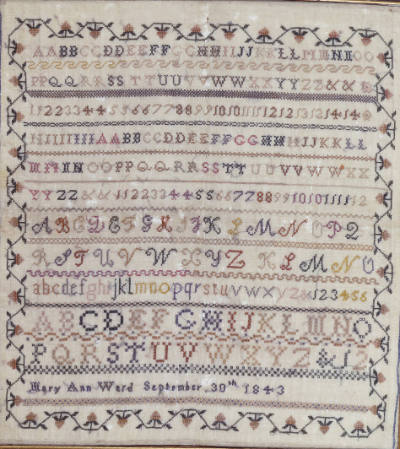 AABBCCDDEEFFGGHHIIJJKKLLMMNNOO
PPQQRRSSTTUUVVWWXXYYZZ&&
1122334455667788991010111112121313121414
HHIIIIIIAABBCCDDEEFFGGHHIIJJKKLL
MMNNOOPPQQRRSSTTUUVVWWXX
YYZZ&&11223344556677889910101111112
ABCDEFGHIJKLMNOPQ
RSTUVWXYZ KLMNO
abcdefghijklmnopqrstuvwxyz&123456
ABCDEFGHIJKLMNO
PQRSTUVWXYZ&12
Mary Ann Ward September 30th 1843